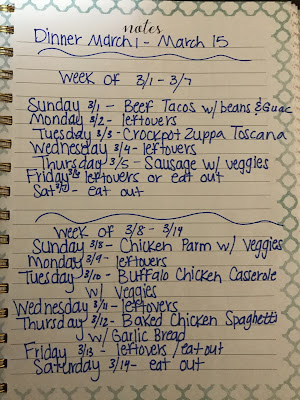 notes
Dinner March 1 - March 15
Week of 3/1 - 3/7
Sunday 3/1 - Beef Tacos w/ beans & Guac
Monday 3/2 - leftovers
Tuesday 3/3 - Crockpot Zuppa Toscana
Wednesday 3/4 - leftovers
Thursday 3/5 - Sausage w/ veggies
Friday 3/6 leftovers or eat out
Sat 3/7 - eat out
Week of 3/8 - 3/14
Sunday 3/8 - Chicken Parm w/ Veggies
Monday 3/9 - leftovers
Tuesday 3/10 - Buffalo Chicken Casserole
w/ Veggies
Wednesday 3/11 - leftovers
Thursday 3/12 - Baked Chicken Spaghetti
w/ Garlic Bread
Friday 3/13 - leftovers / eat out
Saturday 3/14 - eat out